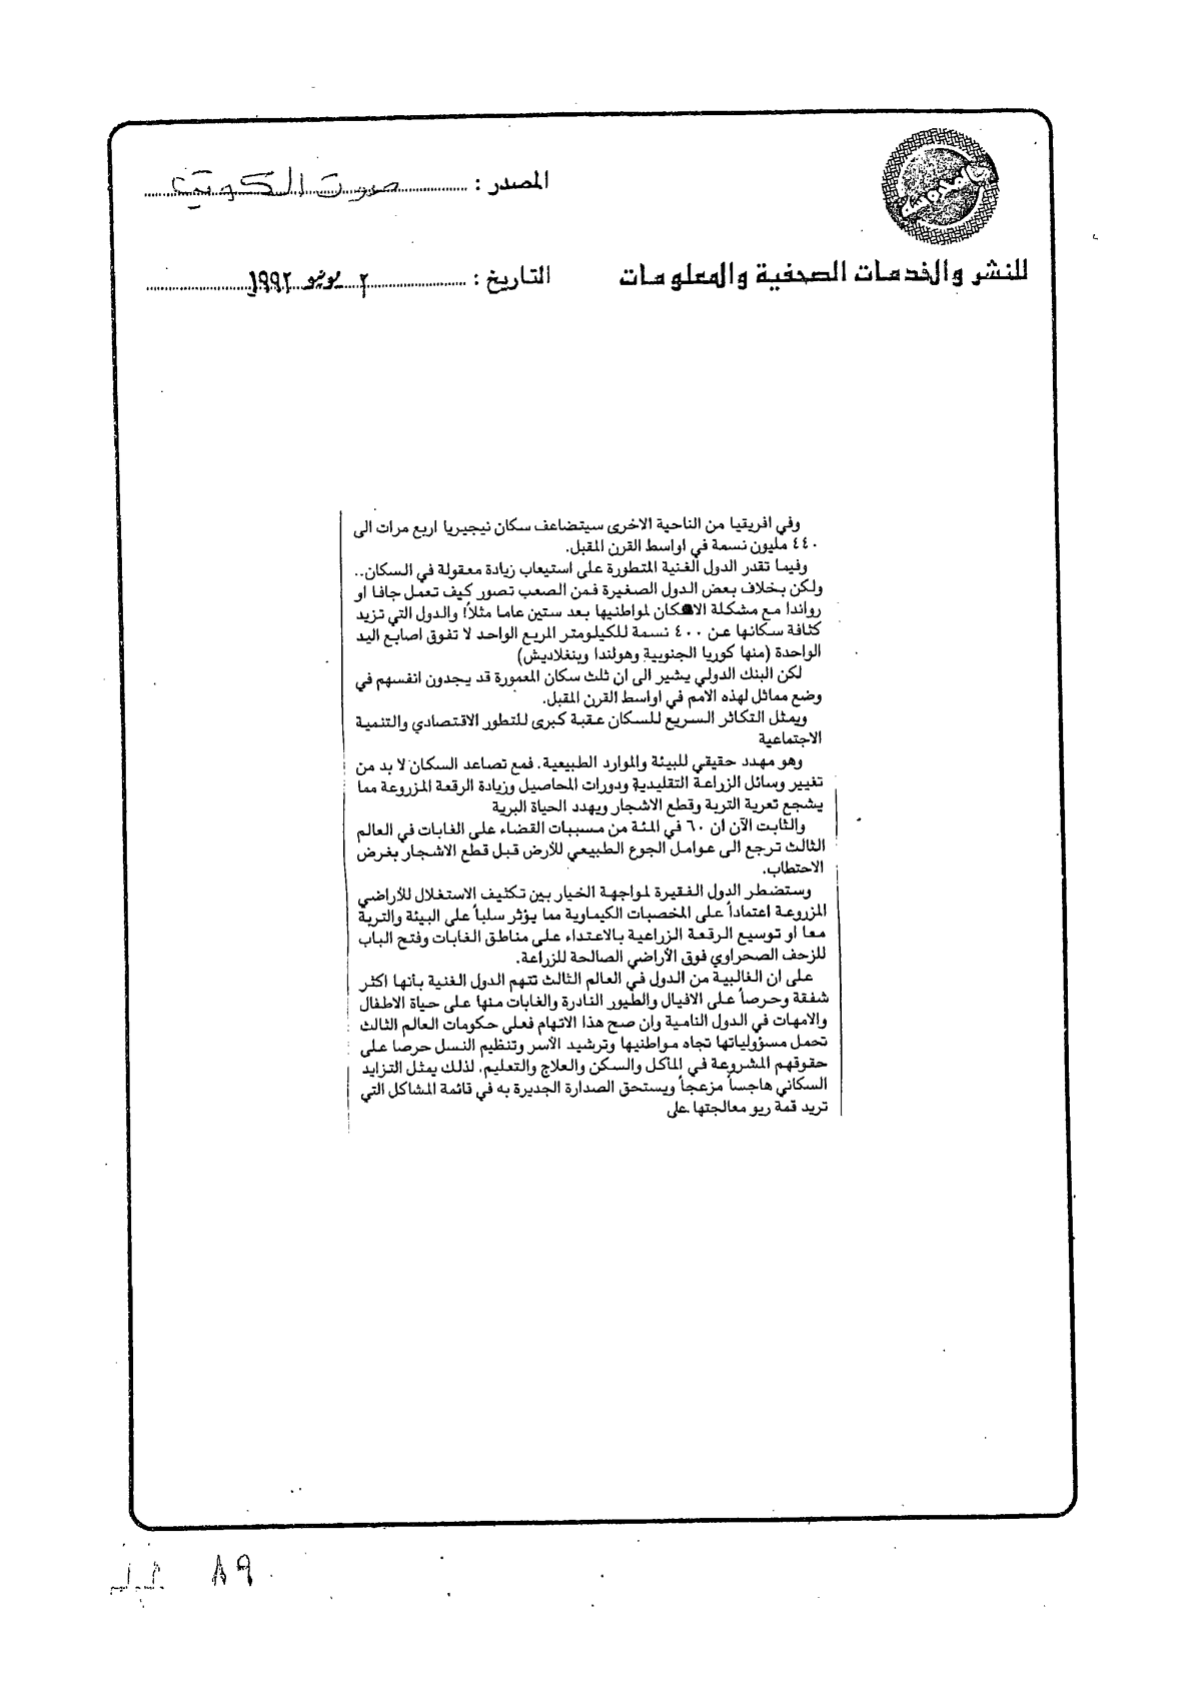 المصدر : صوت الكويت
للنشر والخدمات الصحفية والمعلومات
التاريخ : ٢ يونيو ١٩٩٢
وفي افريقيا من الناحية الاخرى سيتضاعف سكان نيجيريا اربع مرات الى
٤٤٠ مليون نسمة في اواسط القرن المقبل.
وفيما تقدر الدول الغنية المتطورة على استيعاب زيادة معقولة في السكان..
ولكن بخلاف بعض الدول الصغيرة فمن الصعب تصور كيف تعمل جافا او
رواندا مع مشكلة الاسكان لمواطنيها بعد ستين عاما مثلاً! والدول التي تزيد
كثافة سكانها عن ٤٠٠ نسمة للكيلومتر المربع الواحد لا تفوق اصابع اليد
الواحدة (منها كوريا الجنوبية وهولندا وبنغلاديش)
لكن البنك الدولي يشير الى ان ثلث سكان المعمورة قد يجدون انفسهم في
وضع مماثل لهذه الامم في اواسط القرن المقبل.
ويمثل التكاثر السريع للسكان عقبة كبرى للتطور الاقتصادي والتنمية
الاجتماعية
وهو مهدد حقيقي للبيئة والموارد الطبيعية. فمع تصاعد السكان لا بد من
تغيير وسائل الزراعة التقليدية ودورات المحاصيل وزيادة الرقعة المزروعة مما
يشجع تعرية التربة وقطع الاشجار ويهدد الحياة البرية
والثابت الآن ان ٦٠ في المئة من مسببات القضاء على الغابات في العالم
الثالث ترجع الى عوامل الجوع الطبيعي للأرض قبل قطع الاشجار بغرض
الاحتطاب.
وستضطر الدول الفقيرة لمواجهة الخيار بين تكثيف الاستغلال للأراضي
المزروعة اعتماداً على المخصبات الكيماوية مما يؤثر سلباً على البيئة والتربة
معا او توسيع الرقعة الزراعية بالاعتداء على مناطق الغابات وفتح الباب
للزحف الصحراوي فوق الأراضي الصالحة للزراعة.
على ان الغالبية من الدول في العالم الثالث تتهم الدول الغنية بأنها اكثر
شفقة وحرصاً على الافيال والطيور النادرة والغابات منها على حياة الاطفال
والامهات في الدول النامية وان صح هذا الاتهام فعلى حكومات العالم الثالث
تحمل مسؤولياتها تجاه مواطنيها وترشيد الأسر وتنظيم النسل حرصا على
حقوقهم المشروعة في المأكل والسكن والعلاج والتعليم. لذلك يمثل التزايد
السكاني هاجساً مزعجاً ويستحق الصدارة الجديرة به في قائمة المشاكل التي
تريد قمة ريو معالجتها على
٨٩